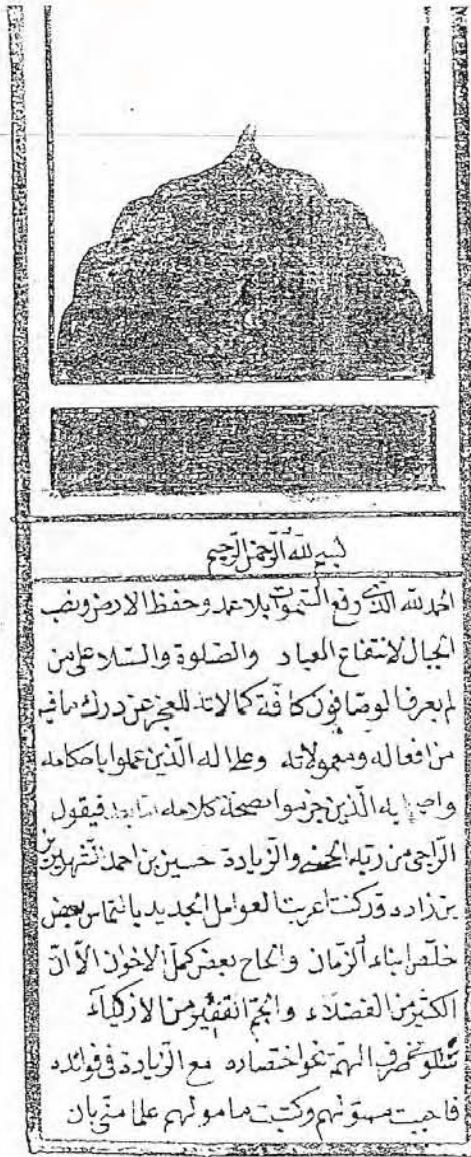 بسم الله الرحمن الرحيم
الحمد لله الذي رفع السموات بلا عمد وحفظ الارض ونصب
الجبال لانتفاع العباد والصلوة والسلام على من
لم يعرف الوصافون كافة كمالاته للعجز عن درك ما فيه
من افعاله ومعمولاته وعلى اله الذين عملوا باحكامه
واصحابه الذين جزموا بصحة كلامه فيقول
الراجى من ربه الحسنى والزيادة حسين بن احمد الشهير
بزينى زاده قد كنت اعربت العوامل الجديد بالتماس بعض
خلص ابناء الزمان والحاح بعض كمل الاخوان الا ان
الكثير من الفضلاء والجم الغفير من الاذكياء
صرف الهمة نحو اختصاره مع الزيادة فى فوائده
فاجبت مسئولهم وكتبت مامولهم علما منى بان